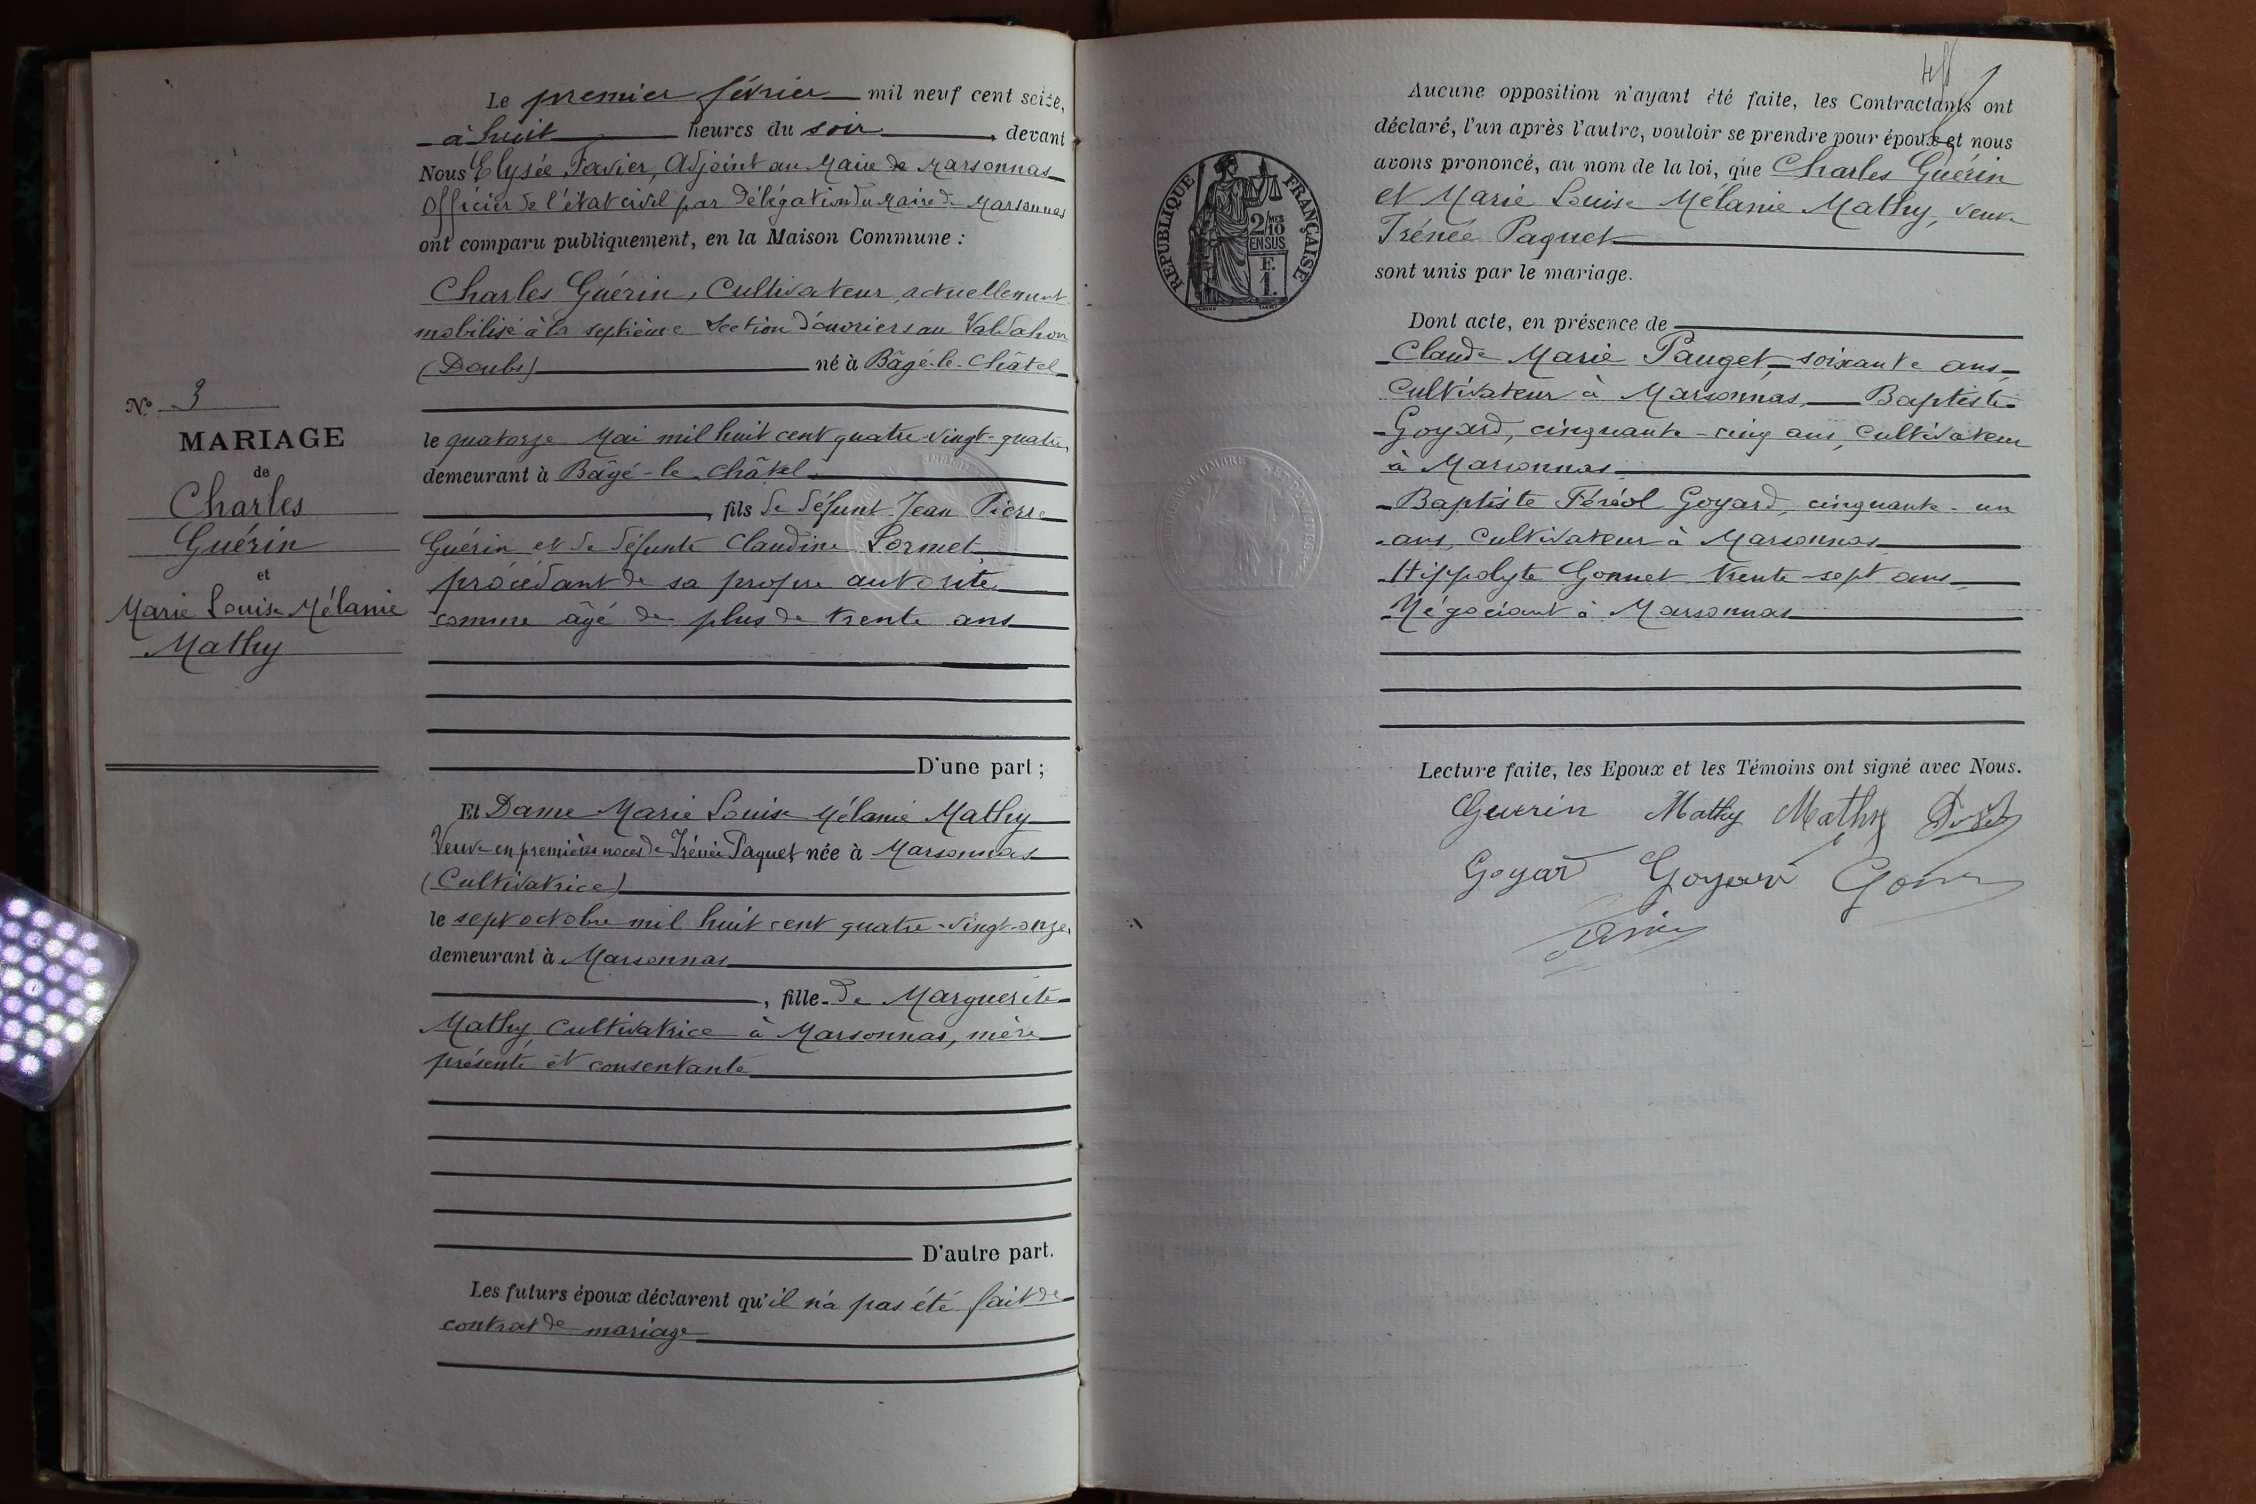 Le premier février mil neuf cent seize,
à huit heures du soir, devant
Nous Elysée Favier, Adjoint au Maire de Marsonnas
Officier de l'état civil par délégation du Maire de Marsonnas
ont comparu publiquement, en la Maison Commune :
Charles Guérin, Cultivateur, actuellement
mobilisé à la septième Section d'ouvriers au Valdahon
(Doubs) né à Bâgé-le-Châtel
le quatorze Mai mil huit cent quatre-vingt-quatre,
demeurant à Bâgé-le-Châtel
, fils de défunt Jean Pierre
Guérin et de défunte Claudine Lormet
procédant de sa propre autorité
comme âgé de plus de trente ans
D'une part ;
Et Dame Marie Louise Mélanie Mathy
Veuve en premières noces de Irénée Paquet née à Marsonnas
(Cultivatrice)
le sept octobre mil huit cent quatre-vingt-onze,
demeurant à Marsonnas
, fille de Marguerite
Mathy, Cultivatrice à Marsonnas, mère
présente et consentante
D'autre part.
Les futurs époux déclarent qu'il n'a pas été fait de
contrat de mariage
N° 3
MARIAGE
de
Charles
Guérin
et
Marie Louise Mélanie
Mathy
Aucune opposition n'ayant été faite, les Contractants ont
déclaré, l'un après l'autre, vouloir se prendre pour époux et nous
avons prononcé, au nom de la loi, que Charles Guérin
et Marie Louise Mélanie Mathy, veuve
Irénée Paquet
sont unis par le mariage.
Dont acte, en présence de
Claude Marie Pauget, soixante ans,
Cultivateur à Marsonnas, Baptiste
Goyard, cinquante-cinq ans, Cultivateur
à Marsonnas
Baptiste Féréol Goyard, cinquante-un
ans, Cultivateur à Marsonnas
Hippolyte Gonnet trente-sept ans,
Négociant à Marsonnas
Lecture faite, les Epoux et les Témoins ont signé avec Nous.
Guerin Mathy Mathy
Goyard Goyard
RÉPUBLIQUE FRANÇAISE
2/10 MES
EN SUS
F.
1.